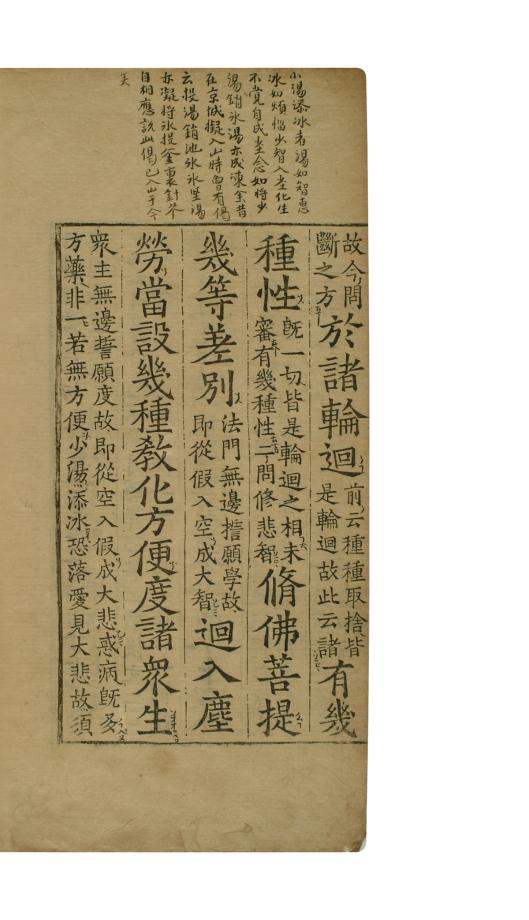 小湯添冰者湯如智惠
冰如煩惱少智入化生
不覺自成念如將少
湯銷氷湯亦成凍余昔
在京城擬入山時曾有偈
云投湯銷池氷氷堅湯
亦凝將氷投釜裏針芥
自相應說此偈已入山于今
矣
故今問
斷之方
於諸輪迴
前云種種取捨皆
是輪迴故此云諸
有幾
種性
既一切皆是輪迴之相未
審有幾種性二問修悲智
脩佛菩提
幾等差別
法門無邊誓願學故
即從假入空成大智
迴入塵
勞當設幾種教化方便度諸衆生
衆主無邊誓願度故即從空入假成大悲惑病既多
方藥非一若無方便少湯添冰恐落愛見大悲故須